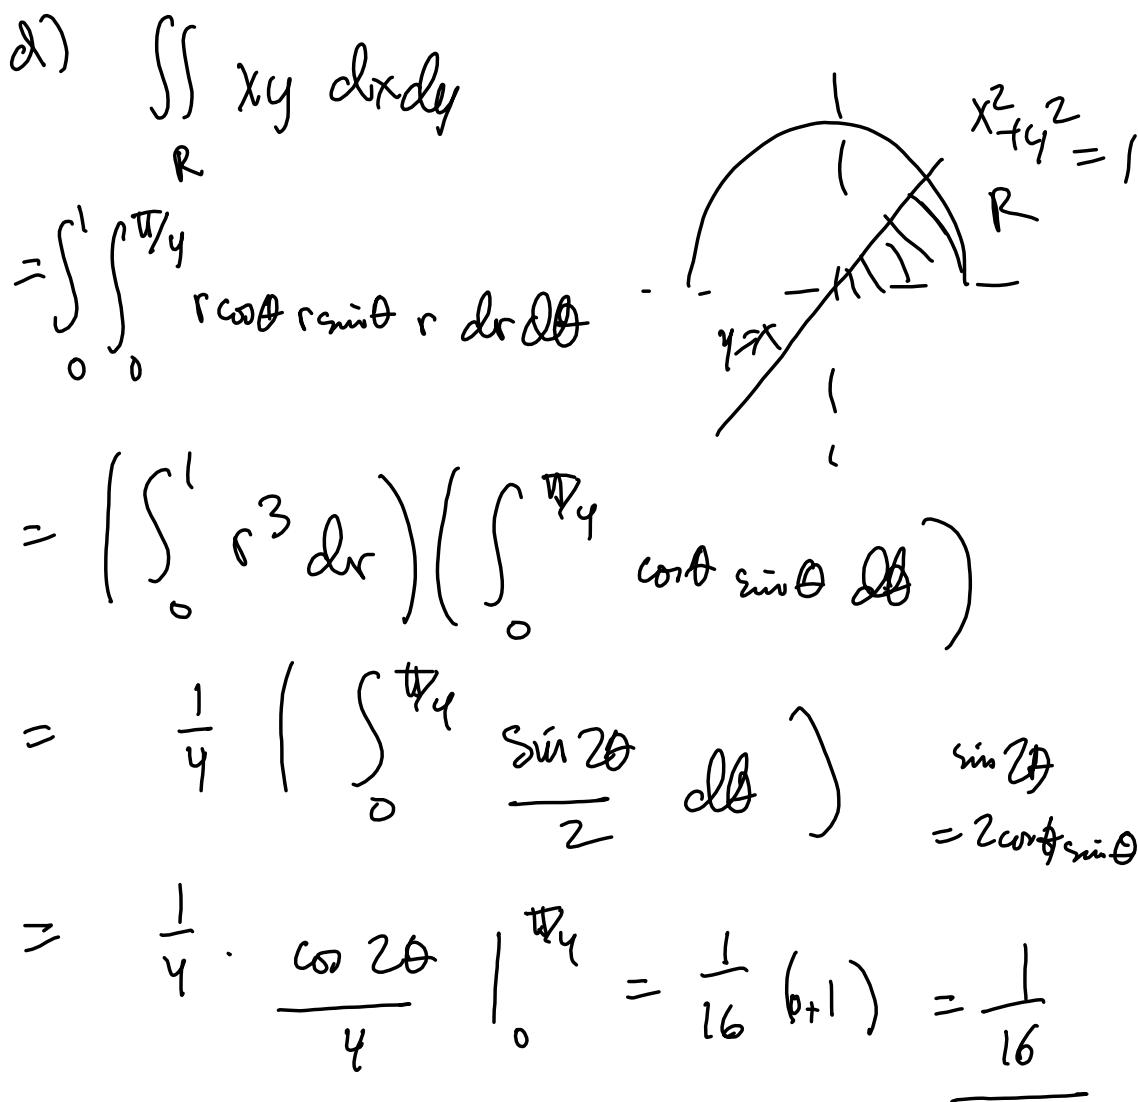 d) ∬_R xy dxdy
x² + y² = 1
R
y=x
= ∫_0^1 ∫_0^{π/4} r cosθ r sinθ r dr dθ
= (∫_0^1 r³ dr) (∫_0^{π/4} cosθ sinθ dθ)
= 1/4 (∫_0^{π/4} sin 2θ / 2 dθ)
sin 2θ
= 2cosθ sinθ
= 1/4 · cos 2θ / 4 |_0^{π/4} = 1/16 (0+1) = 1/16